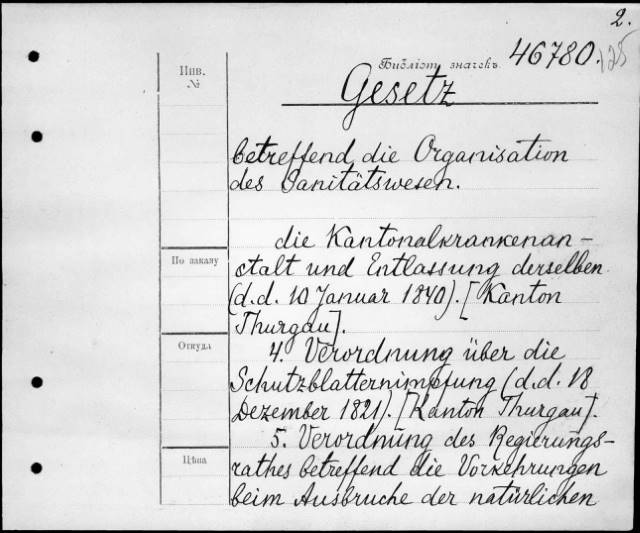 2.
Библіот. значекъ. 46780. 125
Инв.
№
Gesetz
betreffend die Organisation
des Sanitätswesen.
die Kantonalkrankenan-
По заказу
stalt und Entlassung derselben
(d.d. 10 Januar 1840). [Kanton
Thurgau].
Откуда
4. Verordnung über die
Schutzblatternimpfung (d.d. 18
Dezember 1821). [Kanton Thurgau].
5. Verordnung des Regierungs-
Цѣна
rathes betreffend die Vorkehrungen
beim Ausbruche der natürlichen